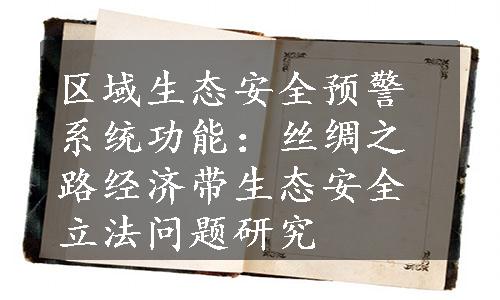 区域生态安全预警
系统功能：丝绸之
路经济带生态安全
立法问题研究